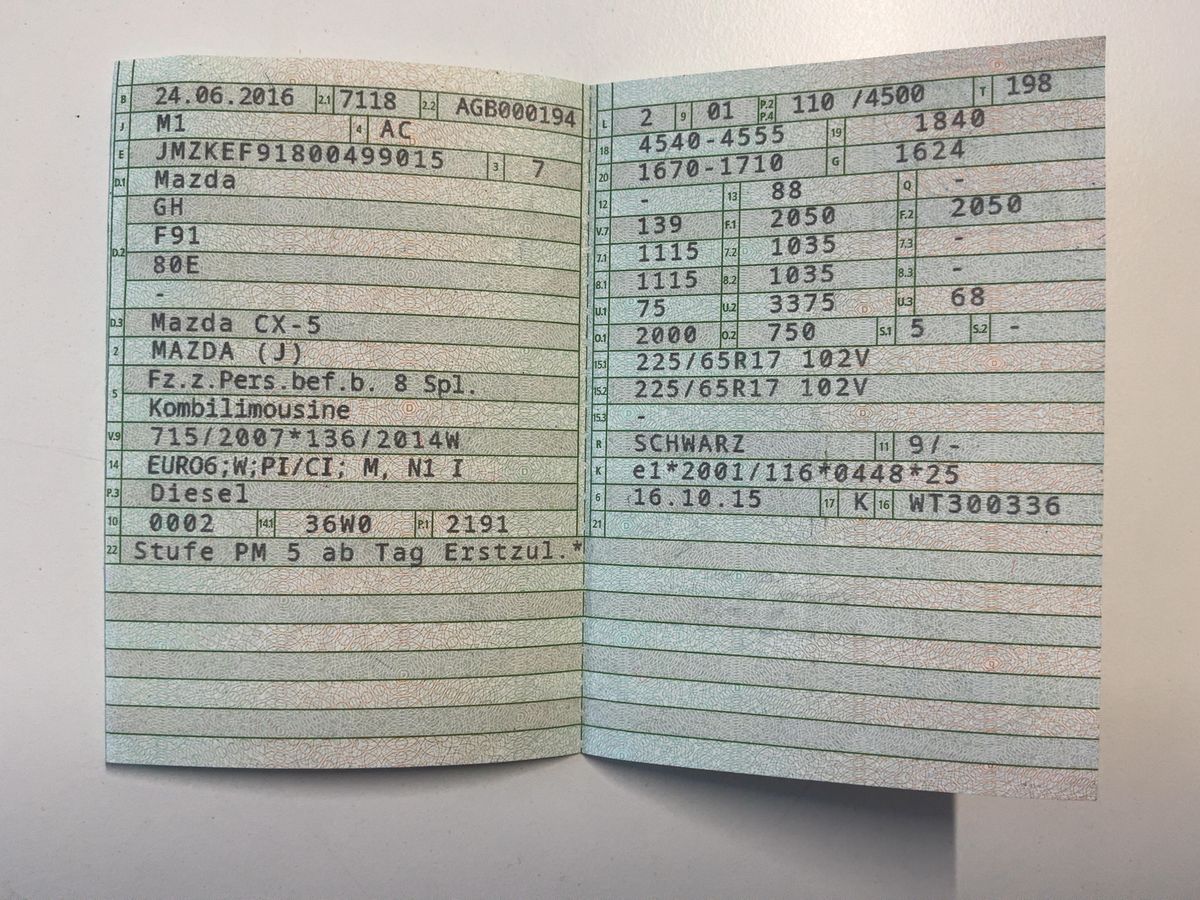 B 24.06.2016 2.1 7118 2.2 AGB000194
J M1 4 AC
E JMZKEF91800499015 3 7
D.1 Mazda
D.2 GH
F91
80E
-
D.3 Mazda CX-5
2 MAZDA (J)
5 Fz.z.Pers.bef.b. 8 Spl.
Kombilimousine
V.9 715/2007*136/2014W
14 EURO6;W;PI/CI; M, N1 I
P.3 Diesel
10 0002 14.1 36W0 P.1 2191
22 Stufe PM 5 ab Tag Erstzul.*
L 2 9 01 P.2 P.4 110 /4500 T 198
18 4540-4555 19 1840
20 1670-1710 G 1624
12 - 13 88 Q -
V.7 139 F.1 2050 F.2 2050
7.1 1115 7.2 1035 7.3 -
8.1 1115 8.2 1035 8.3 -
U.1 75 U.2 3375 U.3 68
O.1 2000 O.2 750 S.1 5 S.2 -
15.1 225/65R17 102V
15.2 225/65R17 102V
15.3 -
R SCHWARZ 11 9/-
K e1*2001/116*0448*25
6 16.10.15 17 K 16 WT300336
21